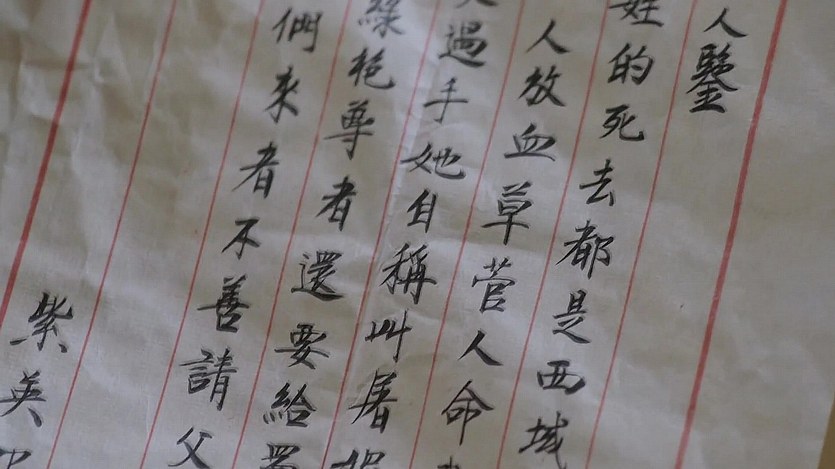 人鑒
姓的死去都是西域
人放血草菅人命
過手她自稱叫屠
艳尊者還要給
們來者不善請父
紫英